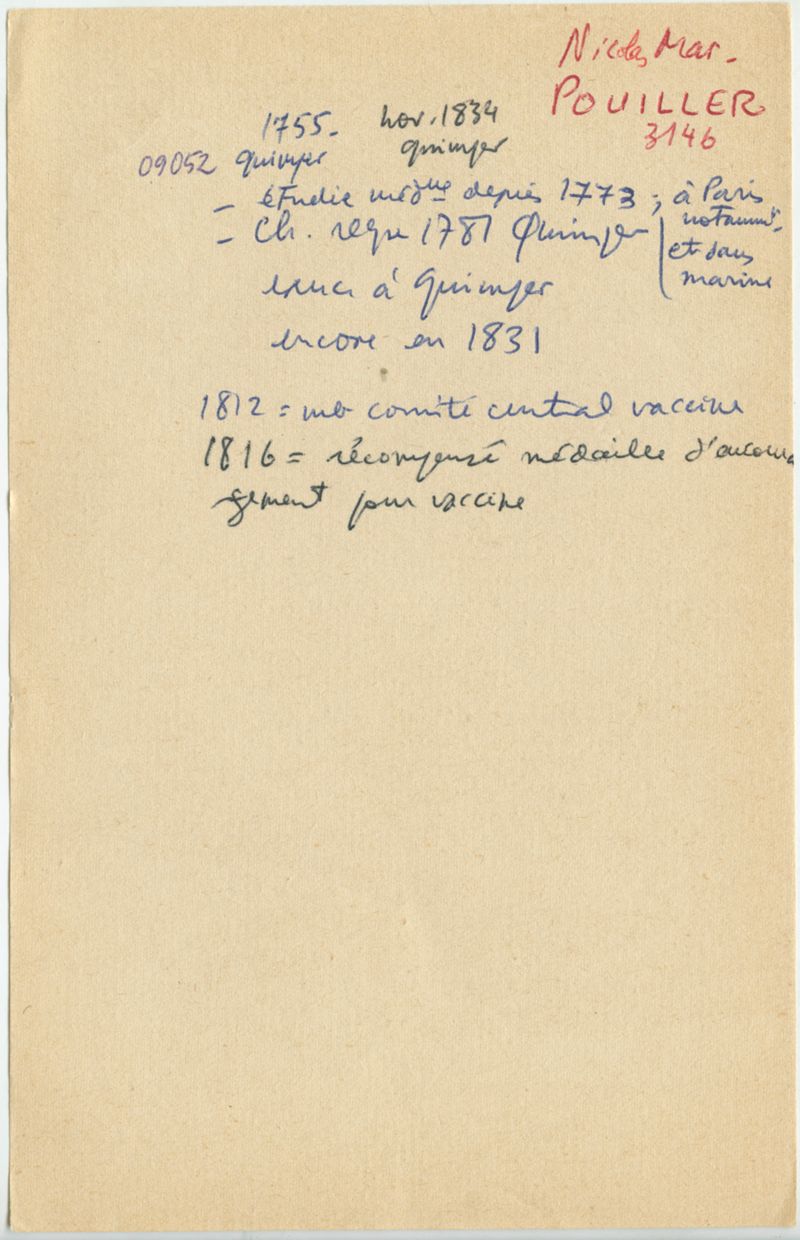 Nicolas Mar.
POUILLER
3146
1755. nov. 1834
09052 Quimper Quimper
– étudie méd^ne depuis 1773 ; à Paris
notamm^t.
– Ch. reçu 1781 Quimper
et dans
marine
exerce à Quimper
encore en 1831
1812 = mb comité central vaccine
1816 = récompensé médaille d'encoura
gement pour vaccine